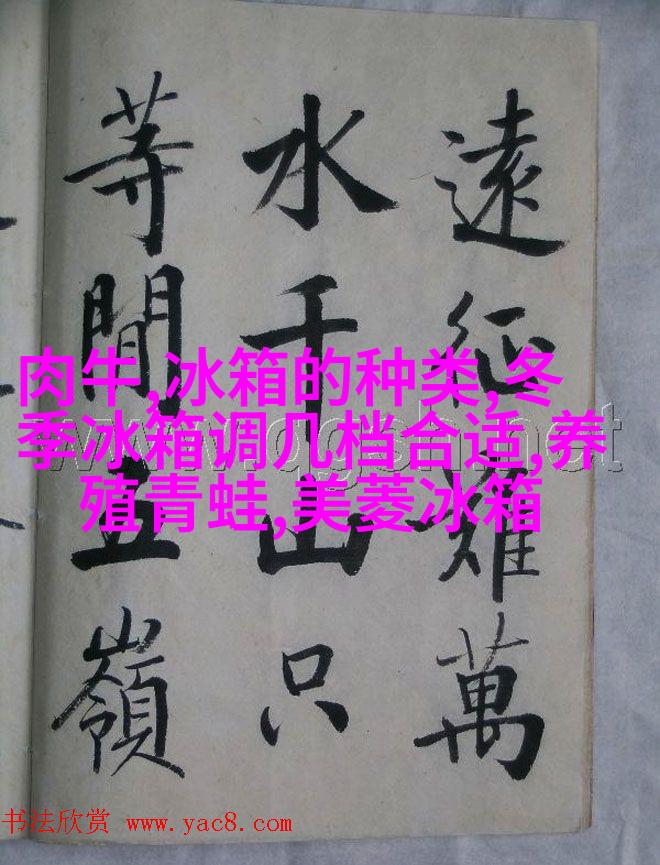 遠征難萬
水千山只
等閒五嶺
肉牛,冰箱的种类,冬
季冰箱调几档合适,养
殖青蛙,美菱冰箱
www.qgsh.net
书法欣赏 www.yac8.com